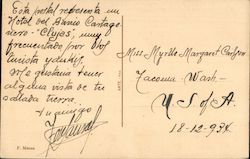 Esta postal representa un
Hotel del Barrio Cartage-
nero "Clyjas", muy
frecuentado por los
turista yankis.
Me gustaria tener
alguna vista de tu
soñada tierra.
Tu amigo
Miss Myrtle Margaret Carlson
Tacoma Wash-
U.S. of A.
18-12-934
F. Mateos